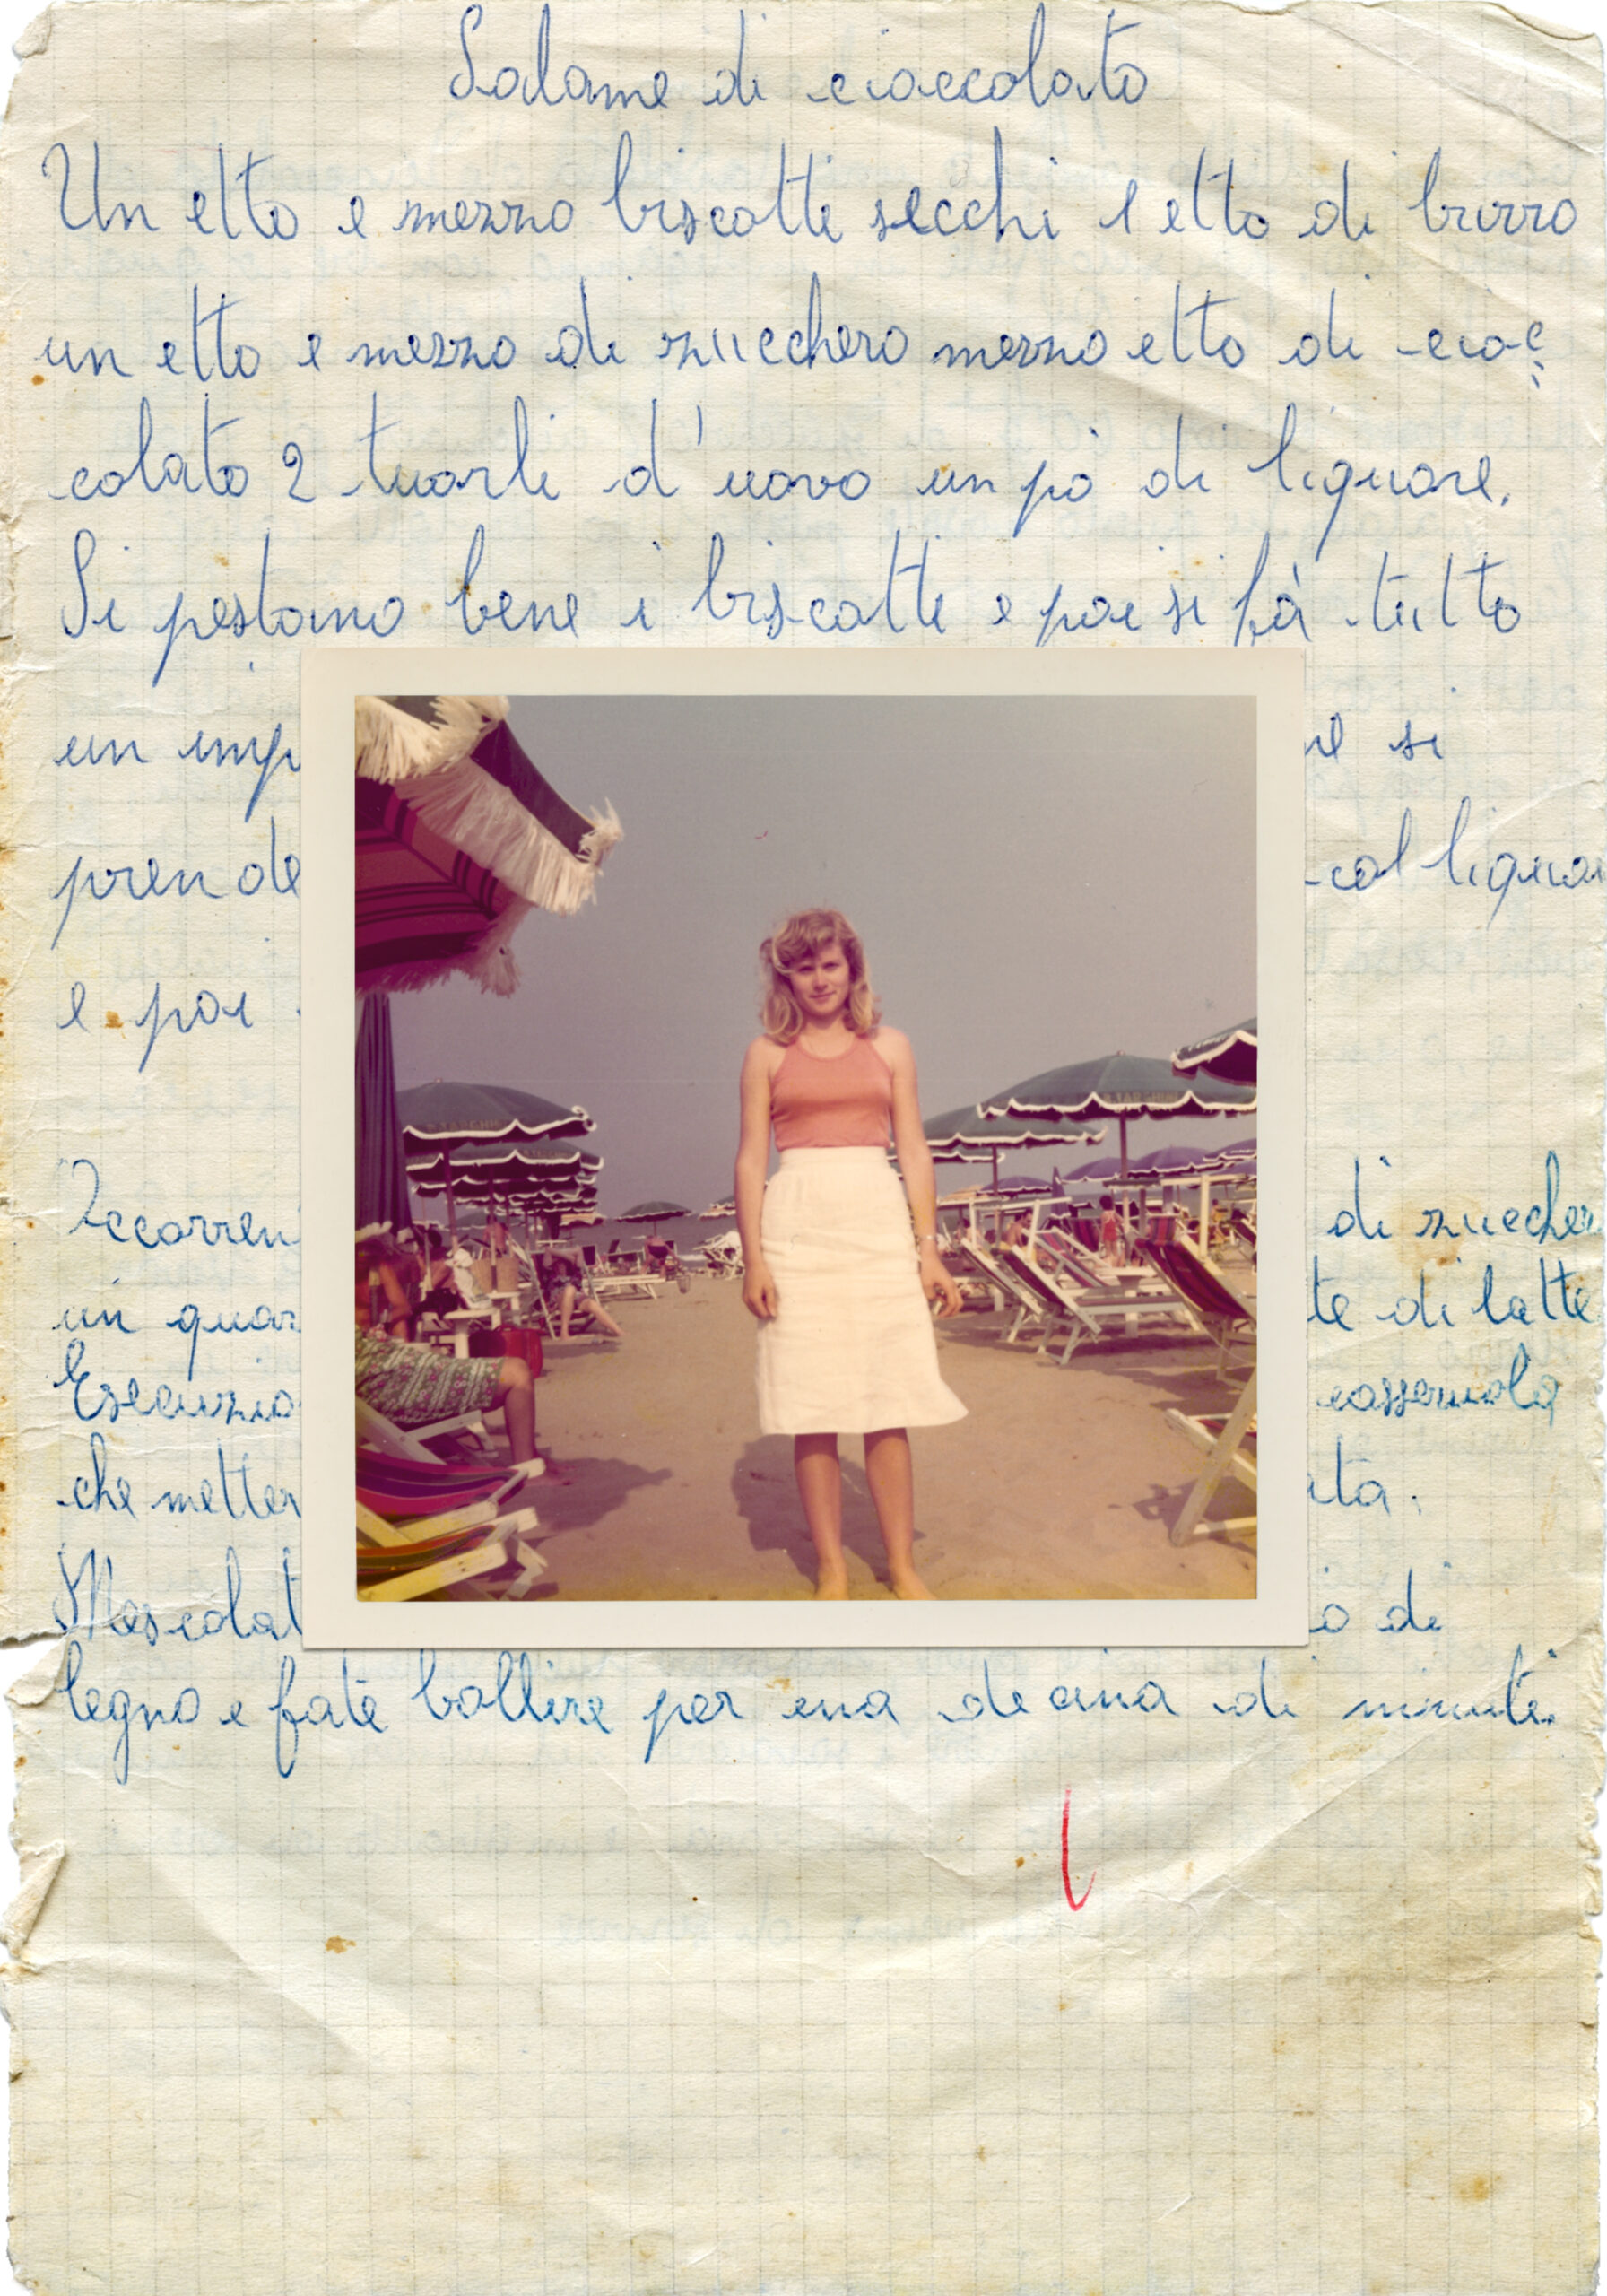 Salame di cioccolato
Un etto e mezzo biscotti secchi 1 etto di burro
un etto e mezzo di zucchero mezzo etto di cioc=
colato 2 tuorli d'uovo un pò di liquore.
Si pestano bene i biscotti e poi si fà tutto
un imp si
prende col liquor
e poi
di zuccher
un quar te di latte
casseruola
che metter
Mescolat di
legno e fate bollire per una decina di minuti.